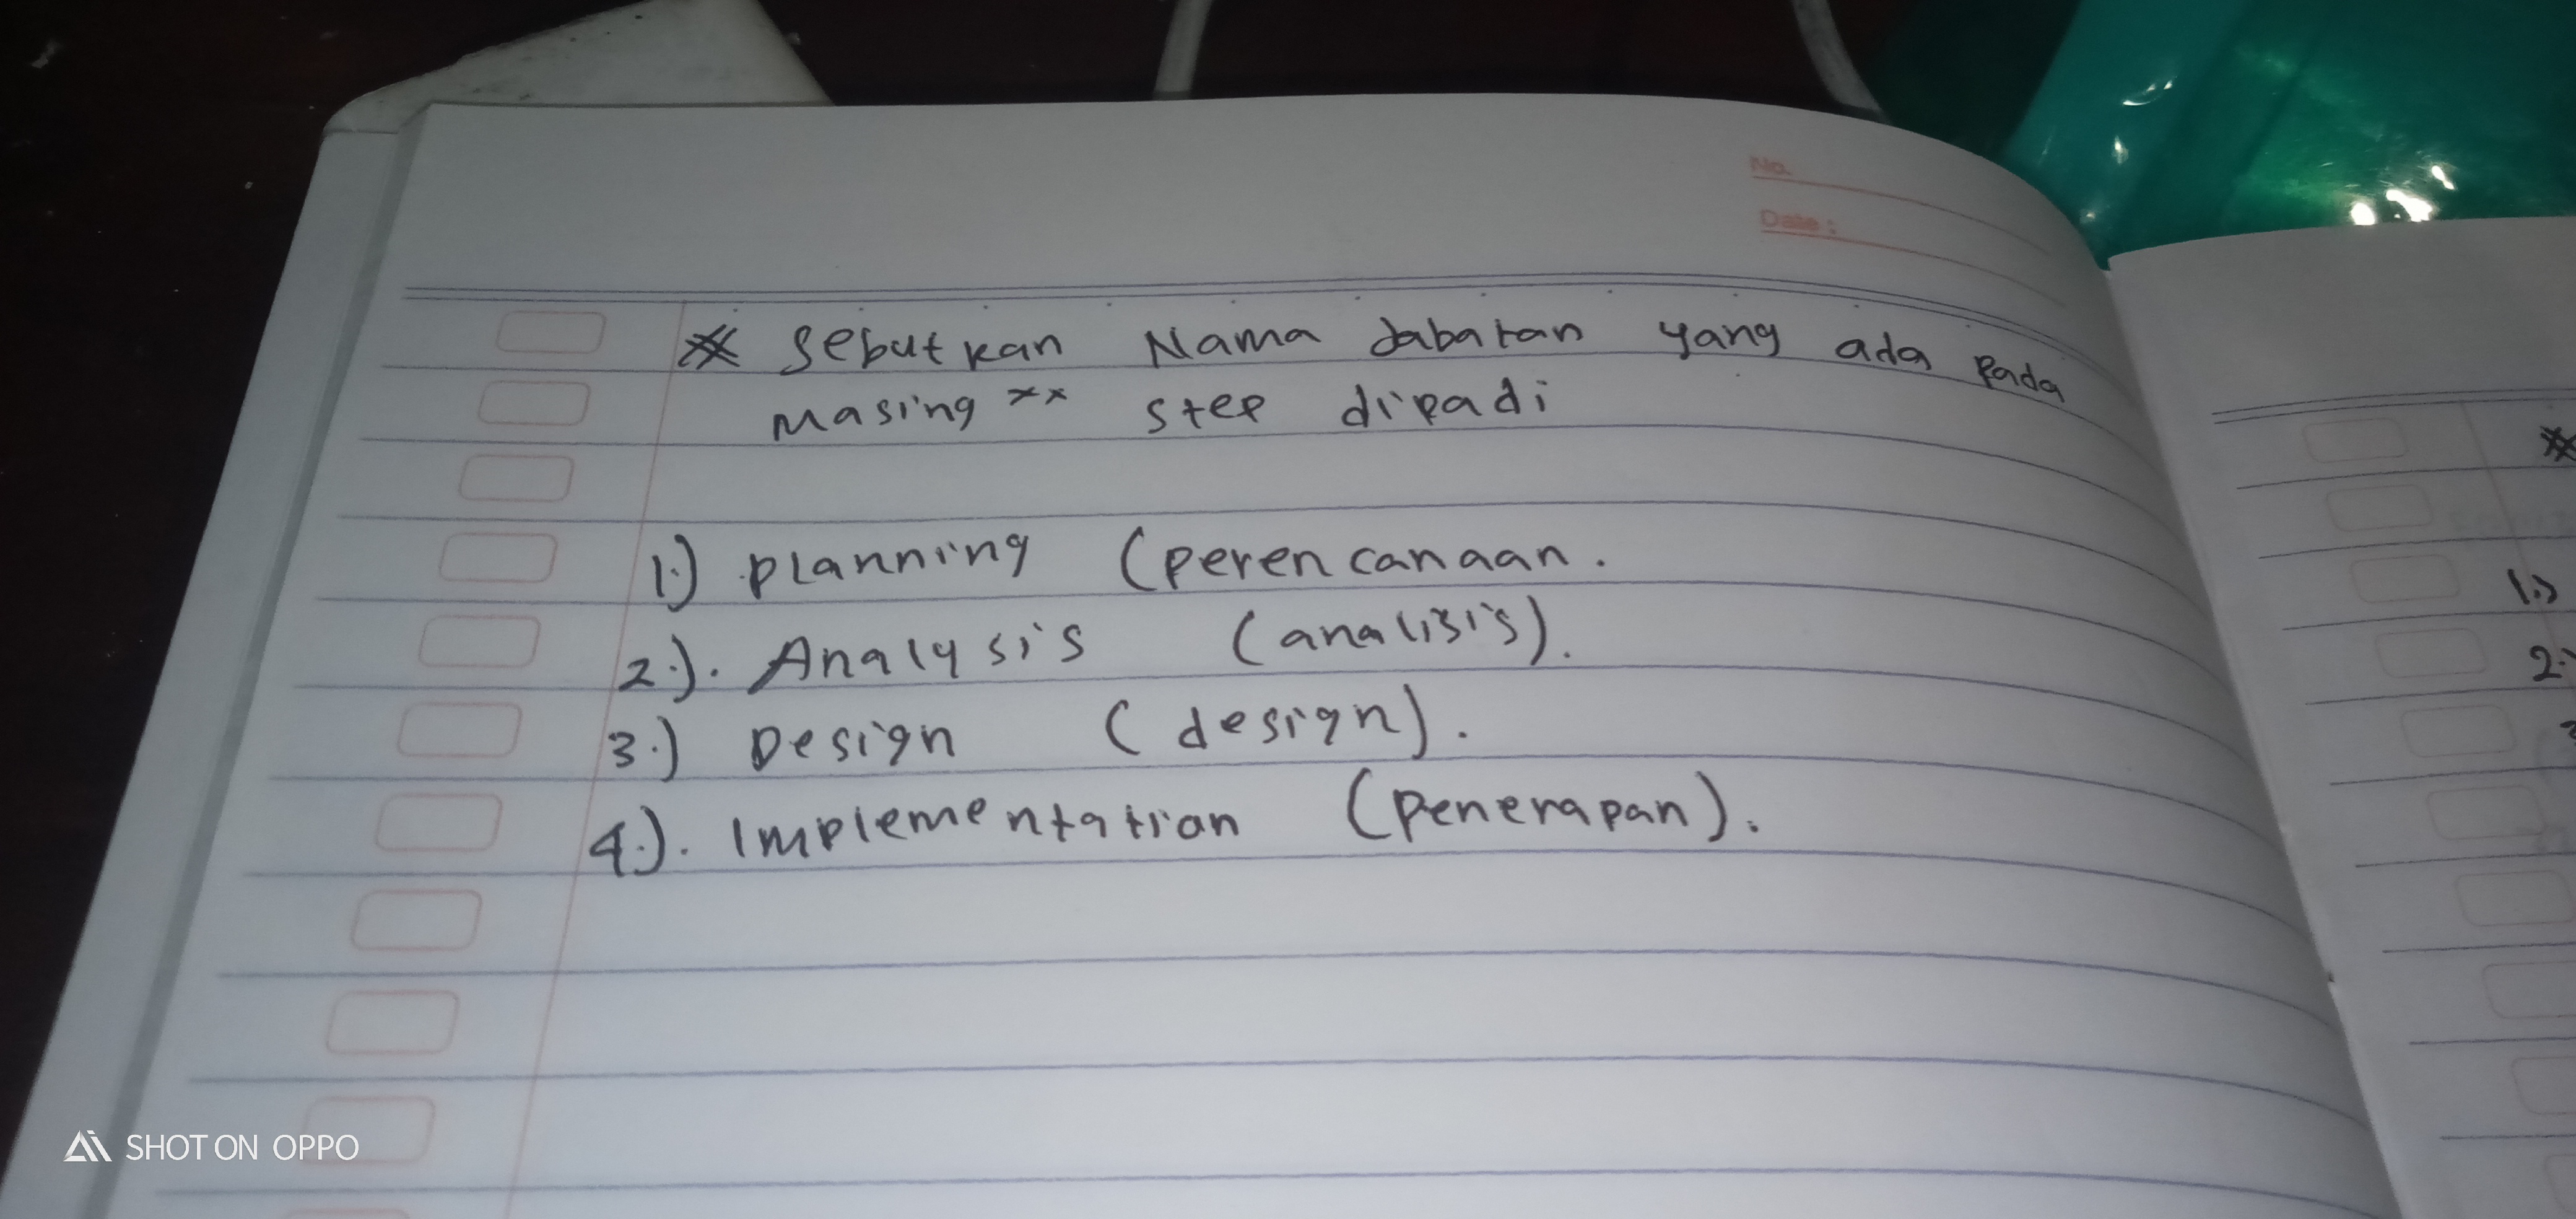 No.
Date :
* Sebutkan Nama Jabatan yang ada pada
Masing ×× step dipadi
1.) planning (perencanaan.
2.). Analysis (analisis).
3.) Design (design).
4.). Implementation (penerapan).
*
1.)
2.)
SHOT ON OPPO